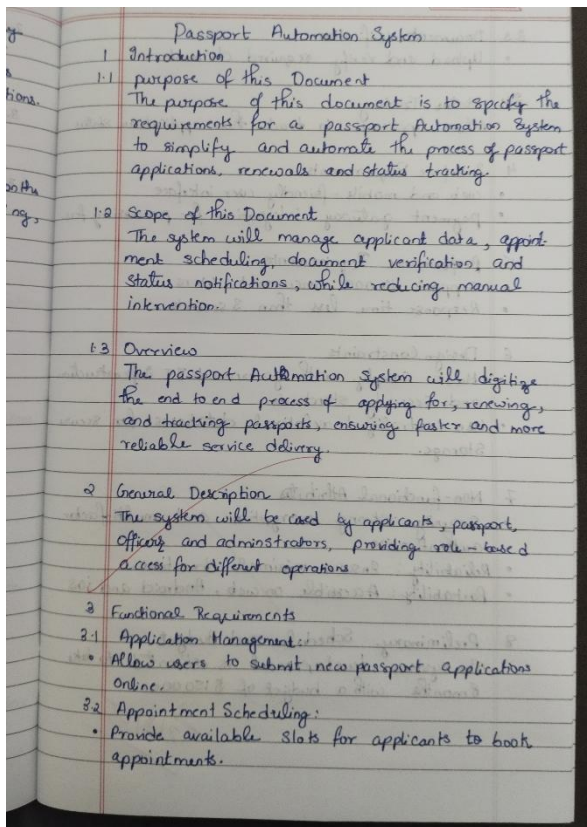 Passport Automation System
1 Introduction
1.1 purpose of this Document
The purpose of this document is to specify the
requirements for a passport Automation System
to simplify and automate the process of passport
applications, renewals and status tracking.
1.2 Scope of this Document
The system will manage applicant data, appoint-
ment scheduling, document verification, and
status notifications, while reducing manual
intervention.
1.3 Overview
The passport Automation System will digitize
the end to end process of applying for, renewing,
and tracking passports, ensuring faster and more
reliable service delivery.
2 General Description
The system will be used by applicants, passport,
officers and adminstrators, providing role-based
access for different operations
3 Functional Requirements
3.1 Application Management:
• Allow users to submit new passport applications
online.
3.2 Appointment Scheduling:
• Provide available slots for applicants to book
appointments.